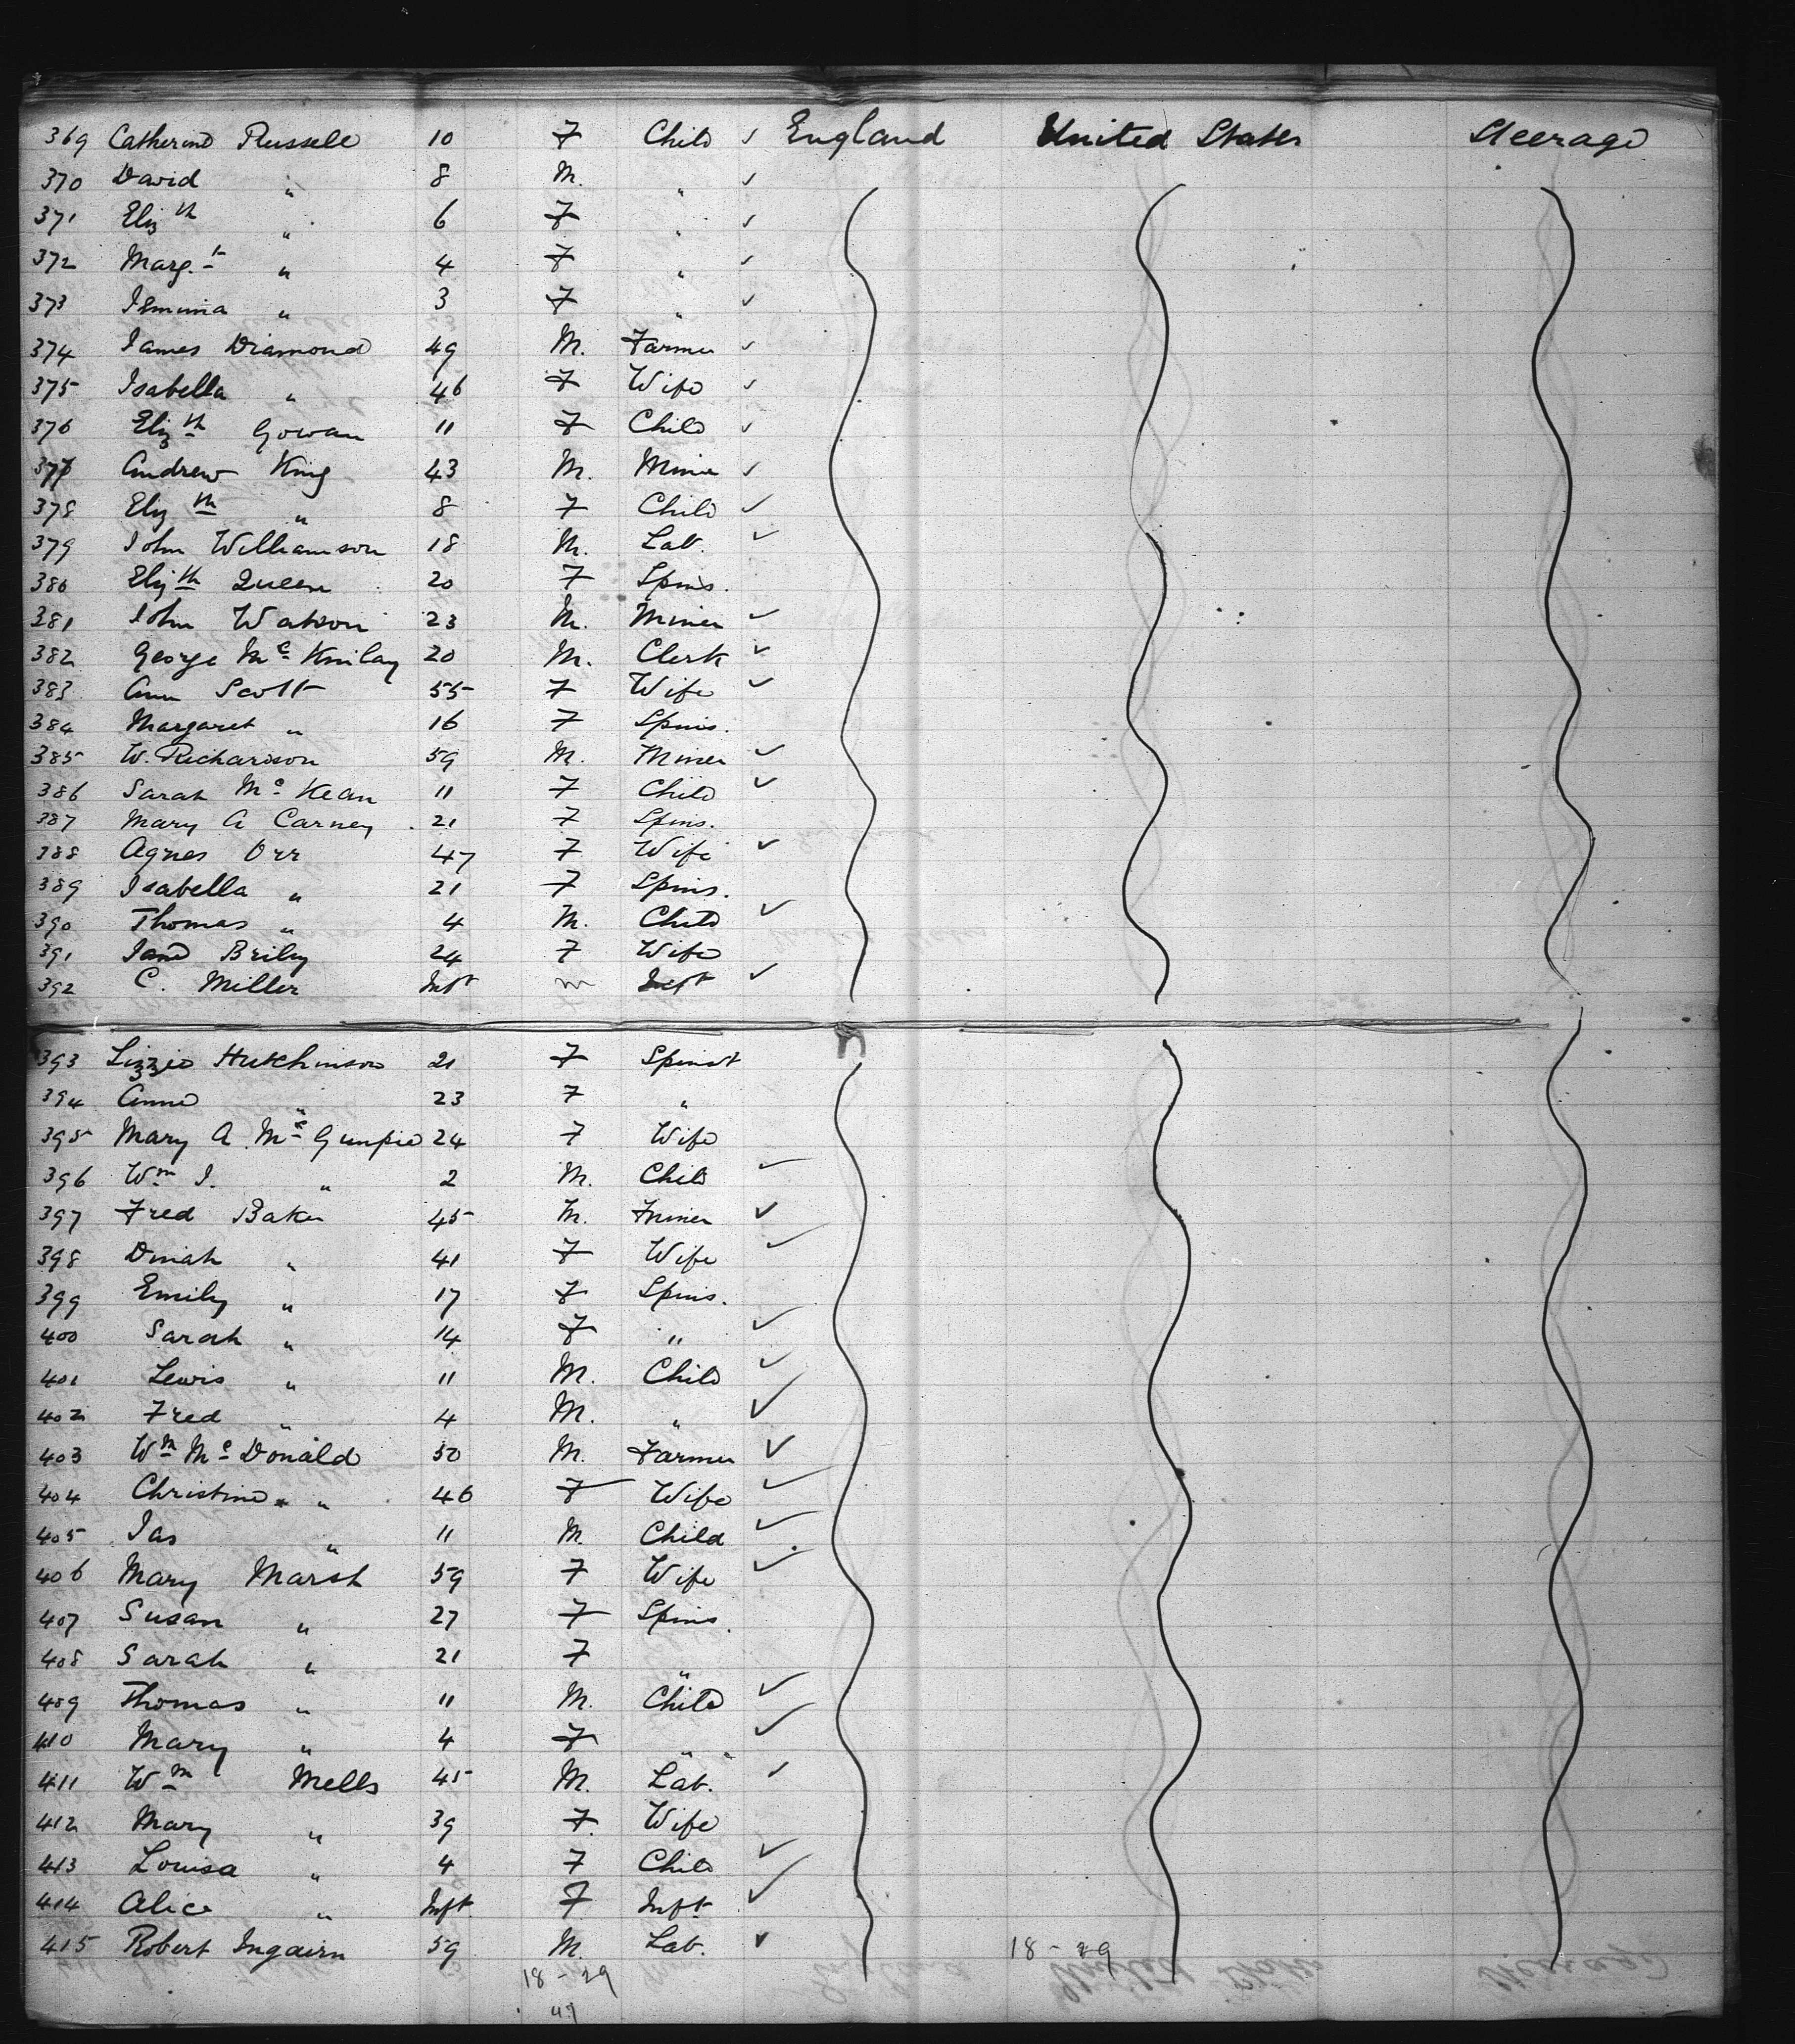 369 Catherine Russell 10 F Child ✓ England United States Steerage
370 David " 8 M. " ✓
371 Eliz th " 6 F " ✓
372 Marg. t " 4 F " ✓
373 Jemima " 3 F " ✓
374 James Diamond 49 M. Farmer ✓
375 Isabella " 46 F Wife ✓
376 Eliz th Gowan 11 F Child ✓
377 Andrew King 43 M. Miner ✓
378 Eliz th " 8 F Child ✓
379 John Williamson 18 M. Lab. ✓
380 Eliz th Queen 20 F Spins.
381 John Watson 23 M. Miner ✓
382 George Mc 20 M. Clerk ✓
383 Ann Scott 55 F Wife ✓
384 Margaret " 16 F Spins.
385 W. Richardson 59 M. Miner ✓
386 Sarah Mc Kean 11 F Child ✓
387 Mary A Carney 21 F Spins.
388 Agnes Orr 47 F Wife ✓
389 Isabella " 21 F Spins.
390 Thomas " 4 M. Child ✓
391 Jane 24 F Wife
392 C. Miller Inft m Inft ✓
393 Lizzie Hutchinson 21 F Spinst
394 Anne " 23 F "
395 Mary A. Mc 24 F Wife
396 Wm J. " 2 M. Child ✓
397 Fred Baker 45 M. Miner ✓
398 Dinah " 41 F Wife ✓
399 Emily " 17 F Spins.
400 Sarah " 14 F " ✓
401 Lewis " 11 M. Child ✓
402 Fred " 4 M. " ✓
403 Wm Mc Donald 50 M. Farmer ✓
404 Christine " 46 F Wife ✓
405 Jas " 11 M. Child ✓
406 Mary Marsh 59 F Wife ✓
407 Susan " 27 F Spins.
408 Sarah " 21 F "
409 Thomas " 11 M. Child ✓
410 Mary " 4 F " ✓
411 Wm Mells 45 M. Lab. ✓
412 Mary " 39 F. Wife
413 Louisa " 4 F Child ✓
414 Alice " Inft. F Inft. ✓
415 Robert 59 M. Lab. ✓ 18-29
18-29